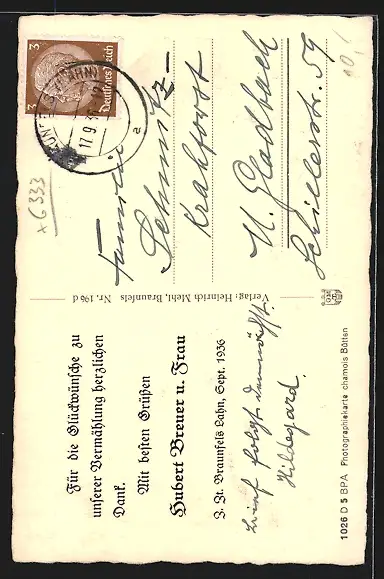 Für die Glückwünsche zu
unserer Vermählung herzlichen
Dank.
Mit besten Grüßen
Hubert Breuer u. Frau
Z. Zt. Braunfels Lahn, Sept. 1936
Brief folgt demnächst.
Hildegard.
Verlag: Heinrich Mehl, Braunfels Nr. 196 d
3 Deutsches Reich 3
17.9.36
a
Familie
Schmitz
Krahforst
M. Gladbach
Schillerstr. 59
x G333
1026 D 5 BPA Photographiekarte chamois Bütten